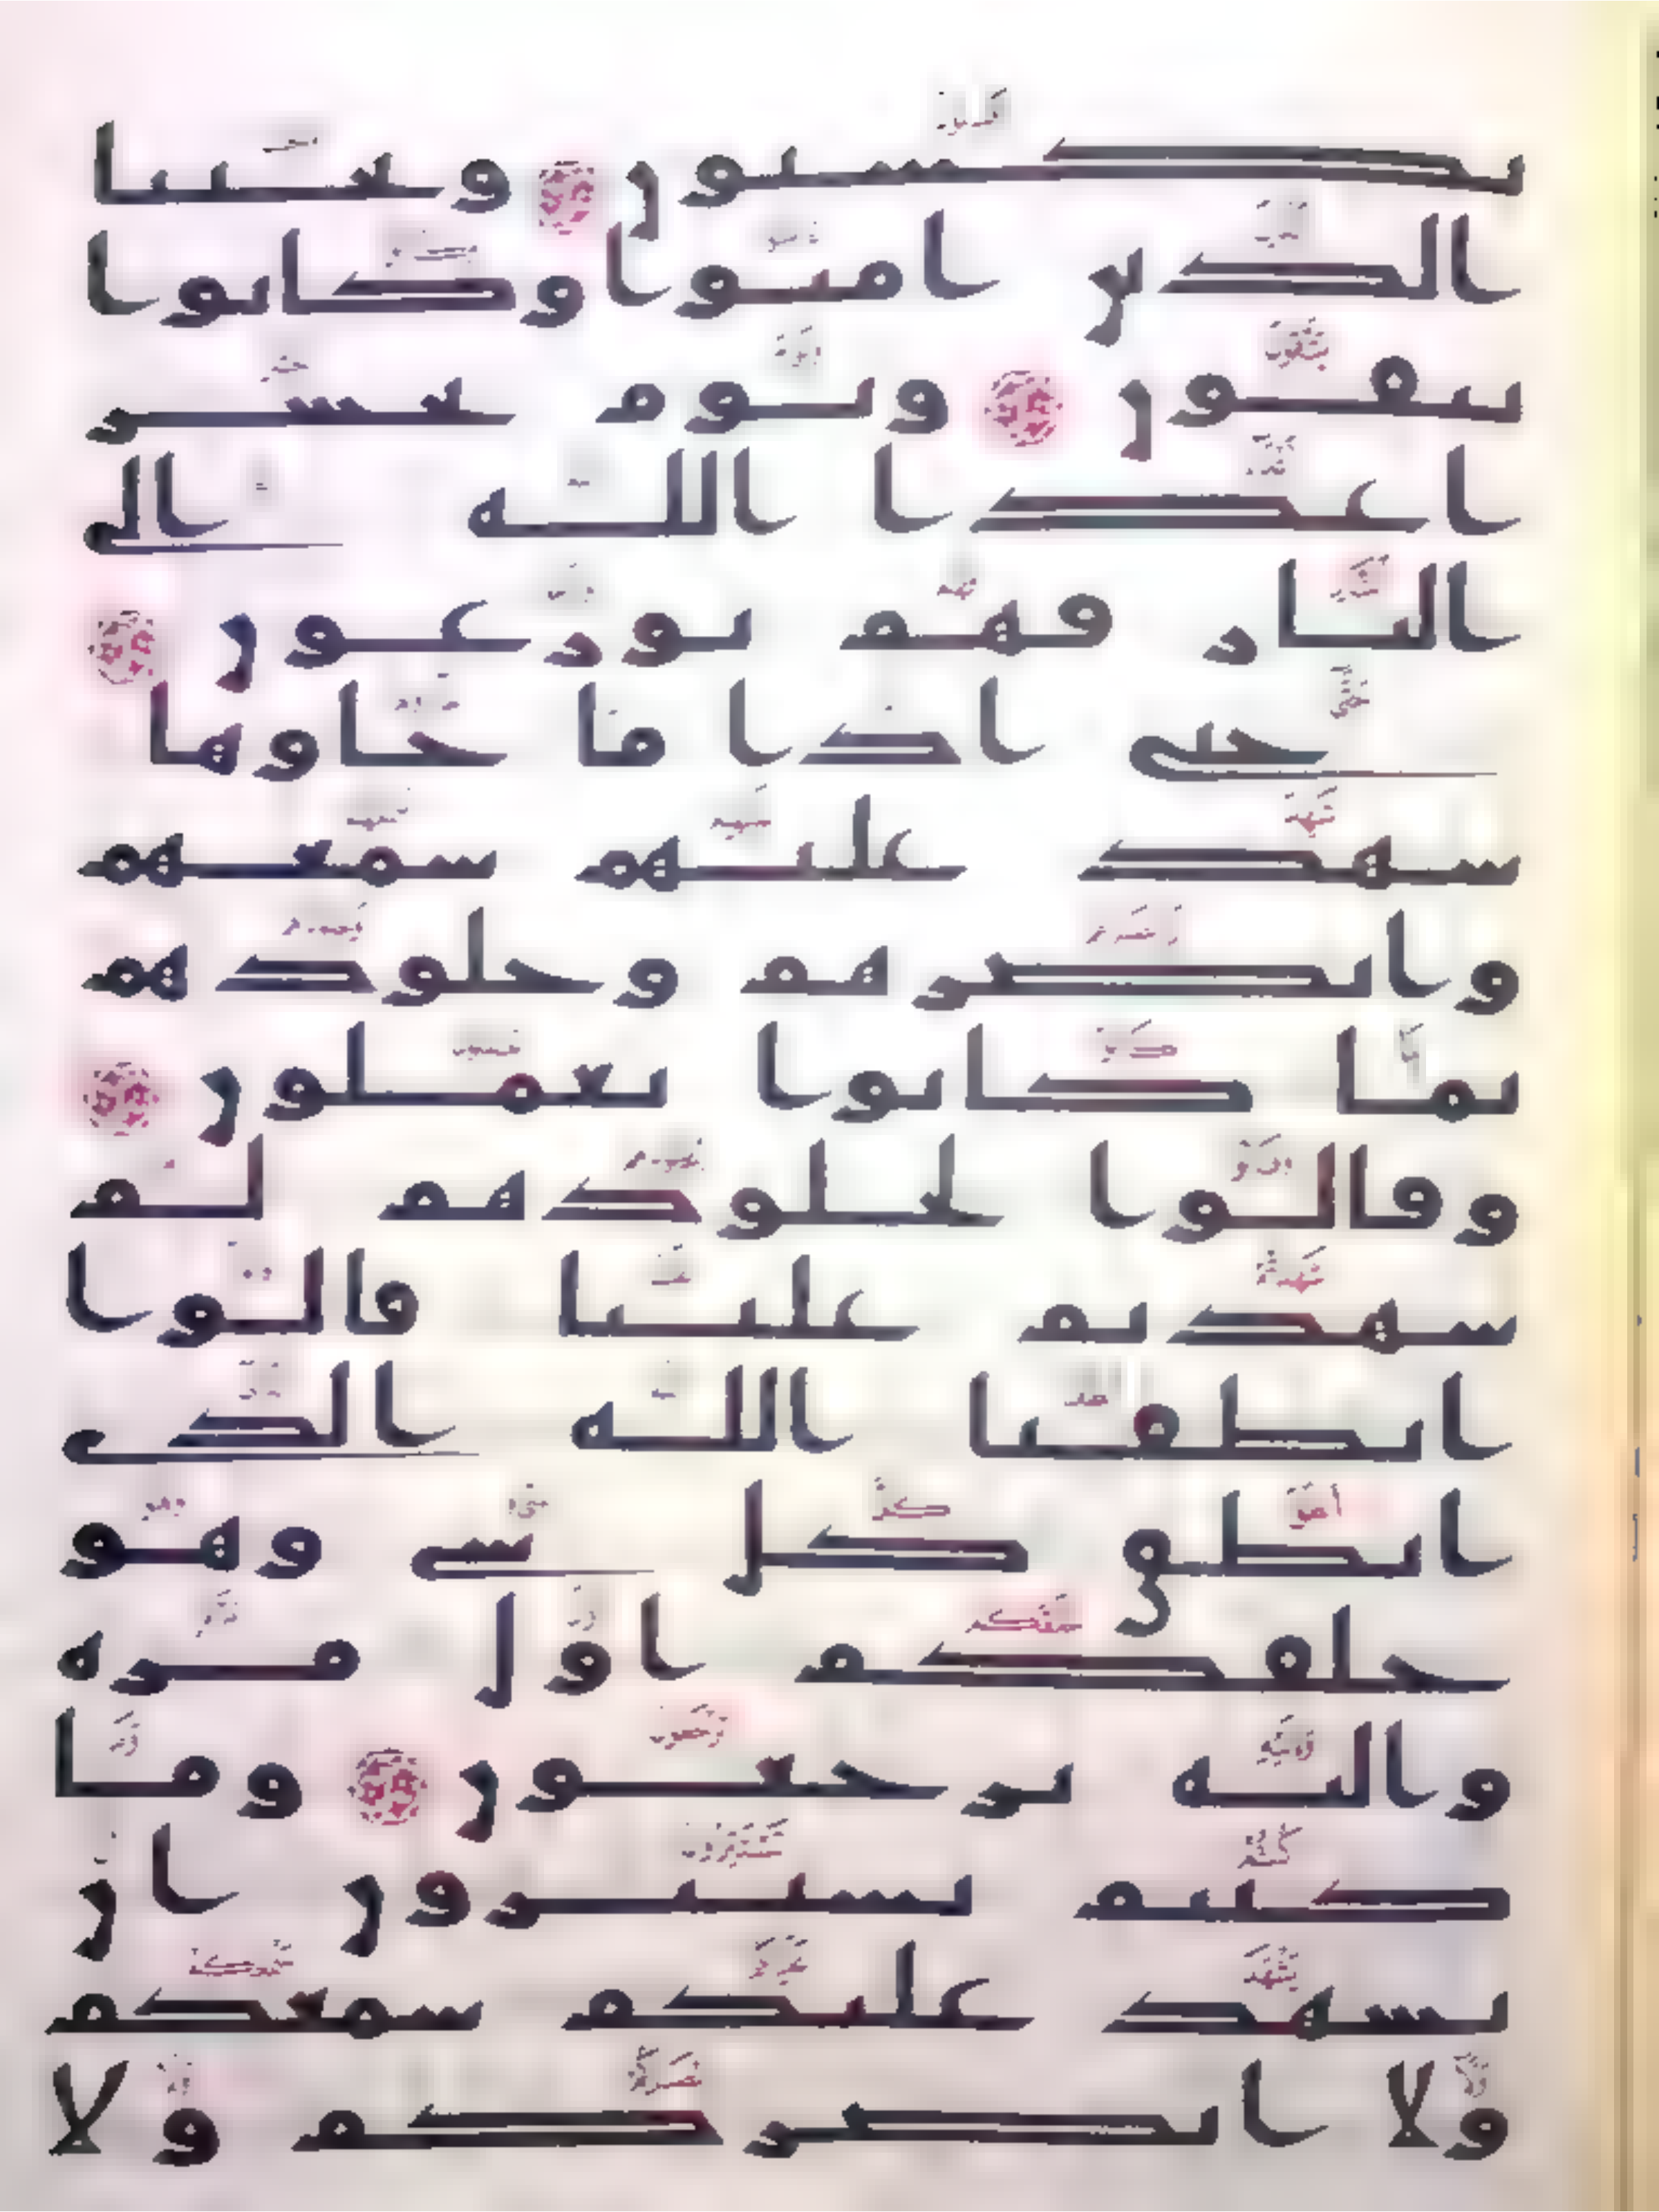 يكسبون ونجينا
الذين امنوا وكانوا
يتقون ويوم يحشر
اعدا الله الى
النار فهم يوزعون
حتى اذا ما جاوها
شهد عليهم سمعهم
وابصرهم وجلودهم
بما كانوا يعملون
وقالوا لجلودهم لم
شهدتم علينا قالوا
انطقنا الله الذى
انطق كل شى وهو
خلقكم اول مره
واليه ترجعون وما
كنتم تستترون ان
يشهد عليكم سمعكم
ولا ابصركم ولا